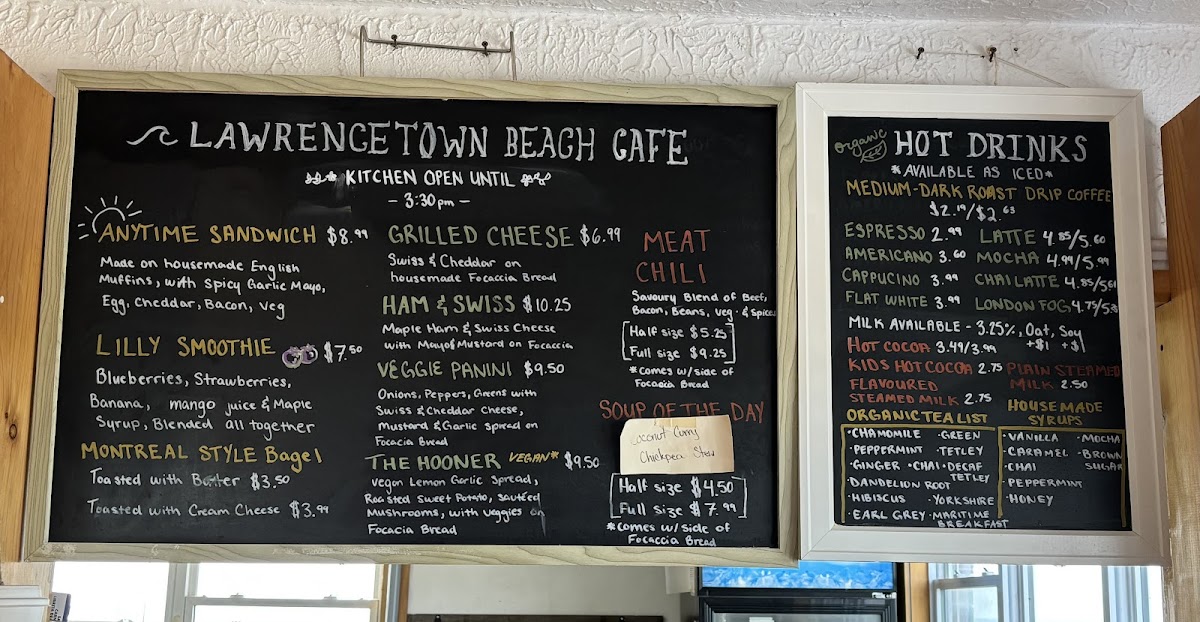 LAWRENCETOWN BEACH CAFE
KITCHEN OPEN UNTIL
- 3:30pm -
ANYTIME SANDWICH $8.99
Made on housemade English
Muffins, with Spicy Garlic Mayo,
Egg, Cheddar, Bacon, Veg
LILLY SMOOTHIE $7.50
Blueberries, Strawberries,
Banana, mango juice & Maple
Syrup, Blended all together
MONTREAL STYLE Bagel
Toasted with Butter $3.50
Toasted with Cream Cheese $3.99
GRILLED CHEESE $6.99
Swiss & Cheddar on
housemade Focaccia Bread
HAM & SWISS $10.25
Maple Ham & Swiss Cheese
with Mayo & Mustard on Focaccia
VEGGIE PANINI $9.50
Onions, Peppers, Greens with
Swiss & Cheddar Cheese,
Mustard & Garlic Spread on
Focacia Bread
THE HOONER VEGAN* $9.50
Vegan Lemon Garlic Spread,
Roasted Sweet Potato, sautéed
Mushrooms, with Veggies on
Focacia Bread
MEAT
CHILI
Savoury Blend of Beef,
Bacon, Beans, Veg. & Spices
Half size $5.25
Full size $9.25
*comes w/ side of
Focacia Bread
SOUP OF THE DAY
Coconut Curry
Chickpea Stew
Half size $4.50
Full size $7.99
*comes w/ side of
Focaccia Bread
organic HOT DRINKS
*AVAILABLE AS ICED*
MEDIUM-DARK ROAST DRIP COFFEE
$2.19/$2.63
ESPRESSO 2.99
AMERICANO 3.60
CAPPUCINO 3.99
FLAT WHITE 3.99
LATTE 4.85/5.60
MOCHA 4.99/5.99
CHAI LATTE 4.85/5.61
LONDON FOG 4.75/5.
MILK AVAILABLE - 3.25%, Oat, Soy
+$1 +$1
HOT COCOA 3.49/3.99
KIDS HOT COCOA 2.75
FLAVOURED
STEAMED MILK 2.75
PLAIN STEAMED
MILK 2.50
ORGANIC TEA LIST
·CHAMOMILE ·GREEN
·PEPPERMINT ·TETLEY
·GINGER ·CHAI ·DECAF
TETLEY
·DANDELION ROOT
·HIBISCUS ·YORKSHIRE
·EARL GREY ·MARITIME
BREAKFAST
HOUSEMADE
SYRUPS
·VANILLA ·MOCHA
·CARAMEL ·BROWN
SUGAR
·CHAI
·PEPPERMINT
·HONEY